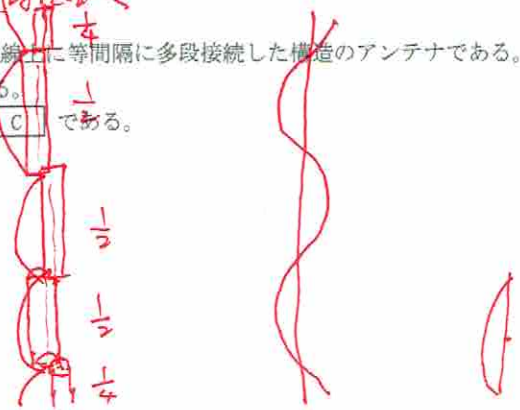 1/4
線上に等間隔に多段接続した構造のアンテナである。
る。
1/2
C である。
1/2
1/2
1/4